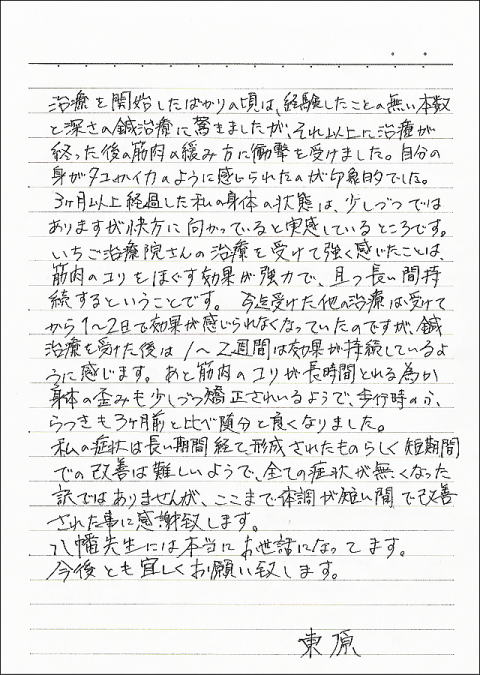 治療を開始したばかりの頃は、経験したことの無い本数
と深さの鍼治療に驚きましたが、それ以上に治療が
終った後の筋肉の緩み方に衝撃を受けました。自分の
身がタコかイカのように感じられたのが印象的でした。
3ヶ月以上経過した私の身体の状態は、少しづつでは
ありますが快方に向かっていると実感しているところです。
いちご治療院さんの治療を受けて強く感じたことは、
筋肉のコリをほぐす効果が強力で、且つ長い間持
続するということです。今迄受けた他の治療は受けて
から1〜2日で効果が感じられなくなっていたのですが、鍼
治療を受けた後は1〜2週間は効果が持続しているよ
うに感じます。あと筋肉のコリが長時間とれる為か
身体の歪みも少しづつ矯正されいるようで、歩行時のふ
らつきも3ヶ月前と比べ随分と良くなりました。
私の症状は長い期間経て形成されたものらしく短期間
での改善は難しいようで、全ての症状が無くなった
訳ではありませんが、ここまで体調が短い間で改善
された事に感謝致します。
八幡先生には本当にお世話になってます。
今後とも宜しくお願い致します。
東原